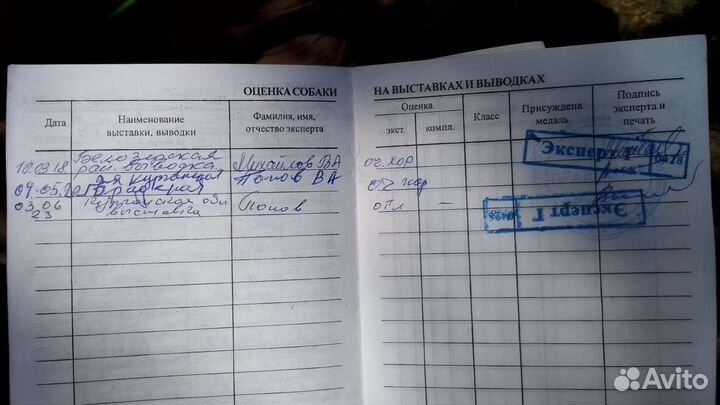 ОЦЕНКА СОБАКИ
Дата
Наименование выставки, выводки
Фамилия, имя, отчество эксперта
10.03.18 Белозерская Михайлов ВА
рай выводка
09.05. Попов ВА
03.06 Курганская обл Попов
23 выставка
НА ВЫСТАВКАХ И ВЫВОДКАХ
Оценка
экст. компл.
Класс
Присуждена медаль
Подпись эксперта и печать
оч. хор
оч хор
отл –
Эксперт 0428
Эксперт I 0428
Avito